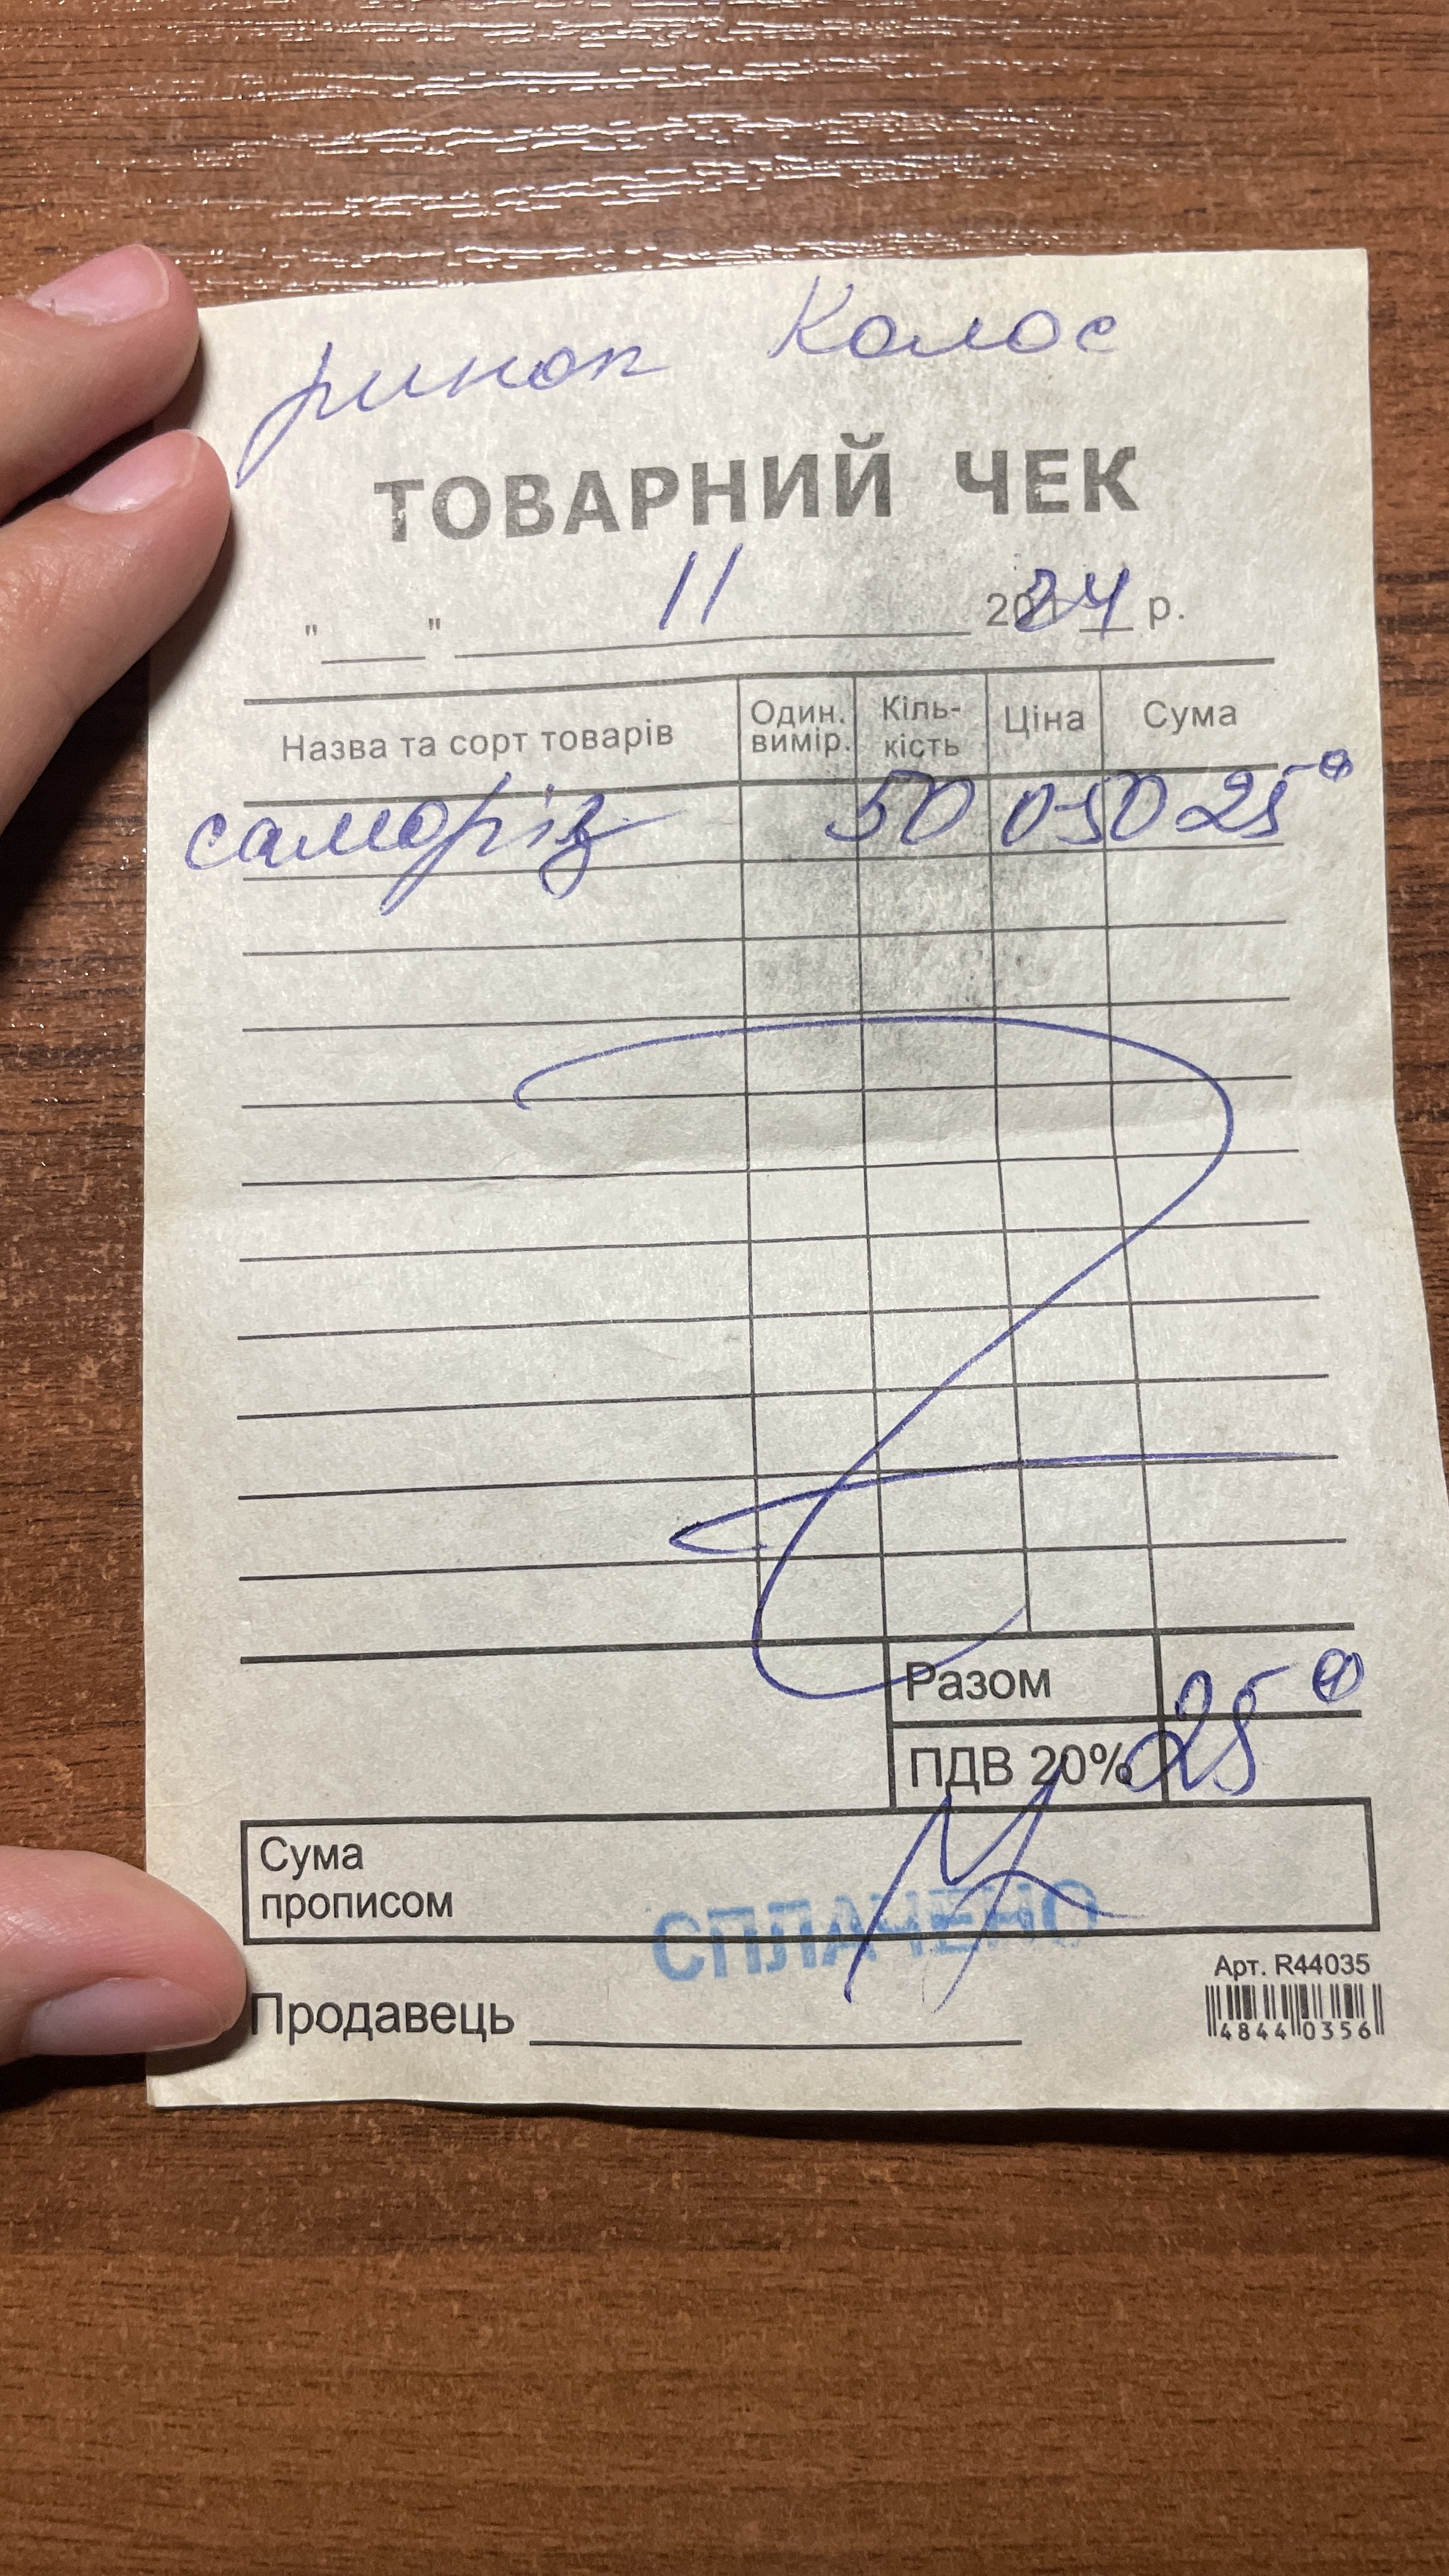 ринок Колос
ТОВАРНИЙ ЧЕК
"____" 11 2024 р.
Назва та сорт товарів Один. вимір. Кіль-кість Ціна Сума
саморіз 50 0-50 25-00
Разом 25-00
ПДВ 20%
Сума
прописом
СПЛАЧЕНО
Арт. R44035
Продавець
48440356